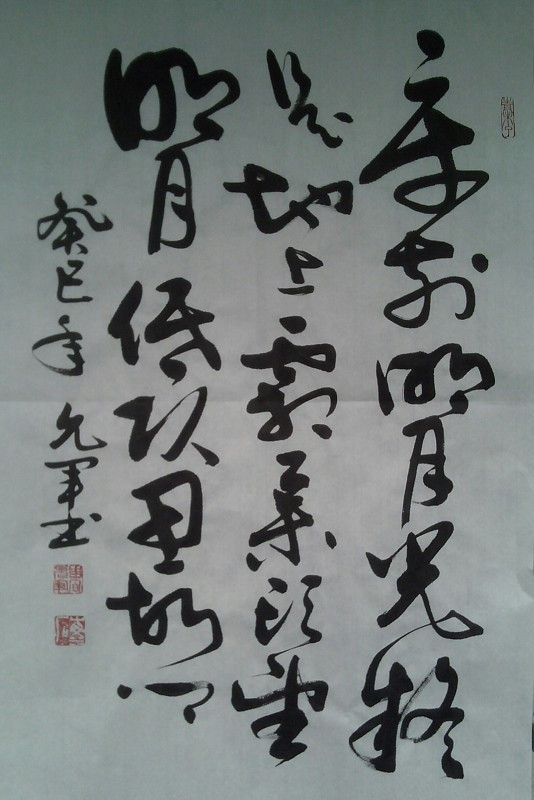 床前明月光疑
是地上霜舉頭望
明月低頭思故鄉
癸巳年 允軍书